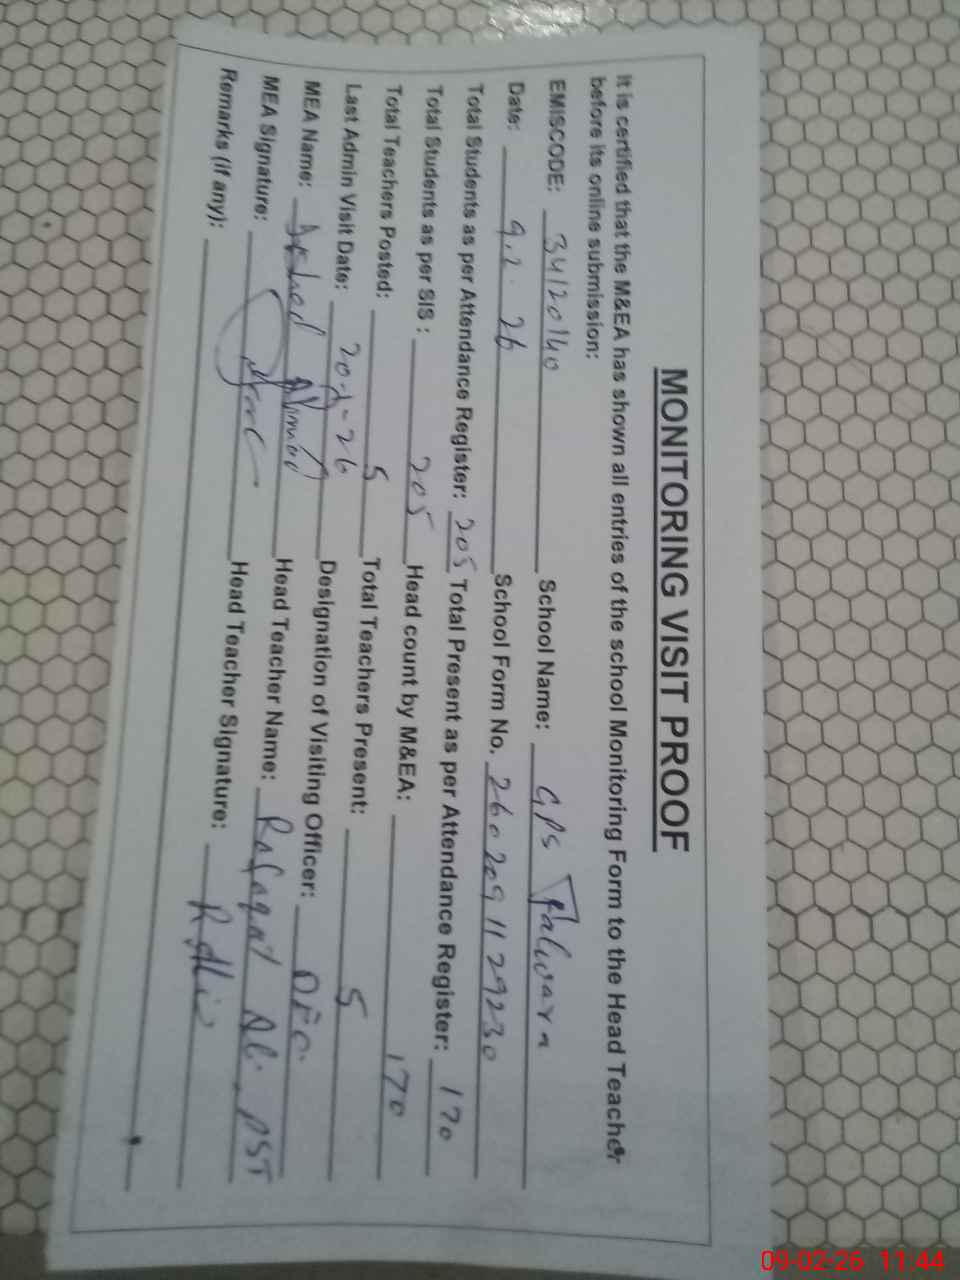 MONITORING VISIT PROOF
It is certified that the M&EA has shown all entries of the school Monitoring Form to the Head Teacher
before its online submission:
EMISCODE: 34120140 School Name: GPS Talwara
Date: 9.2.26 School Form No. 260209 11 29230
Total Students as per Attendance Register: 205 Total Present as per Attendance Register: 170
Total Students as per SIS : 205 Head count by M&EA: 170
Total Teachers Posted: 5 Total Teachers Present: 5
Last Admin Visit Date: 20-1-26 Designation of Visiting Officer: DEO
MEA Name: Ahmad Head Teacher Name: Rafaqat Ali, PST
MEA Signature: Head Teacher Signature: R Ali
Remarks (if any):
09-02-26 11:44